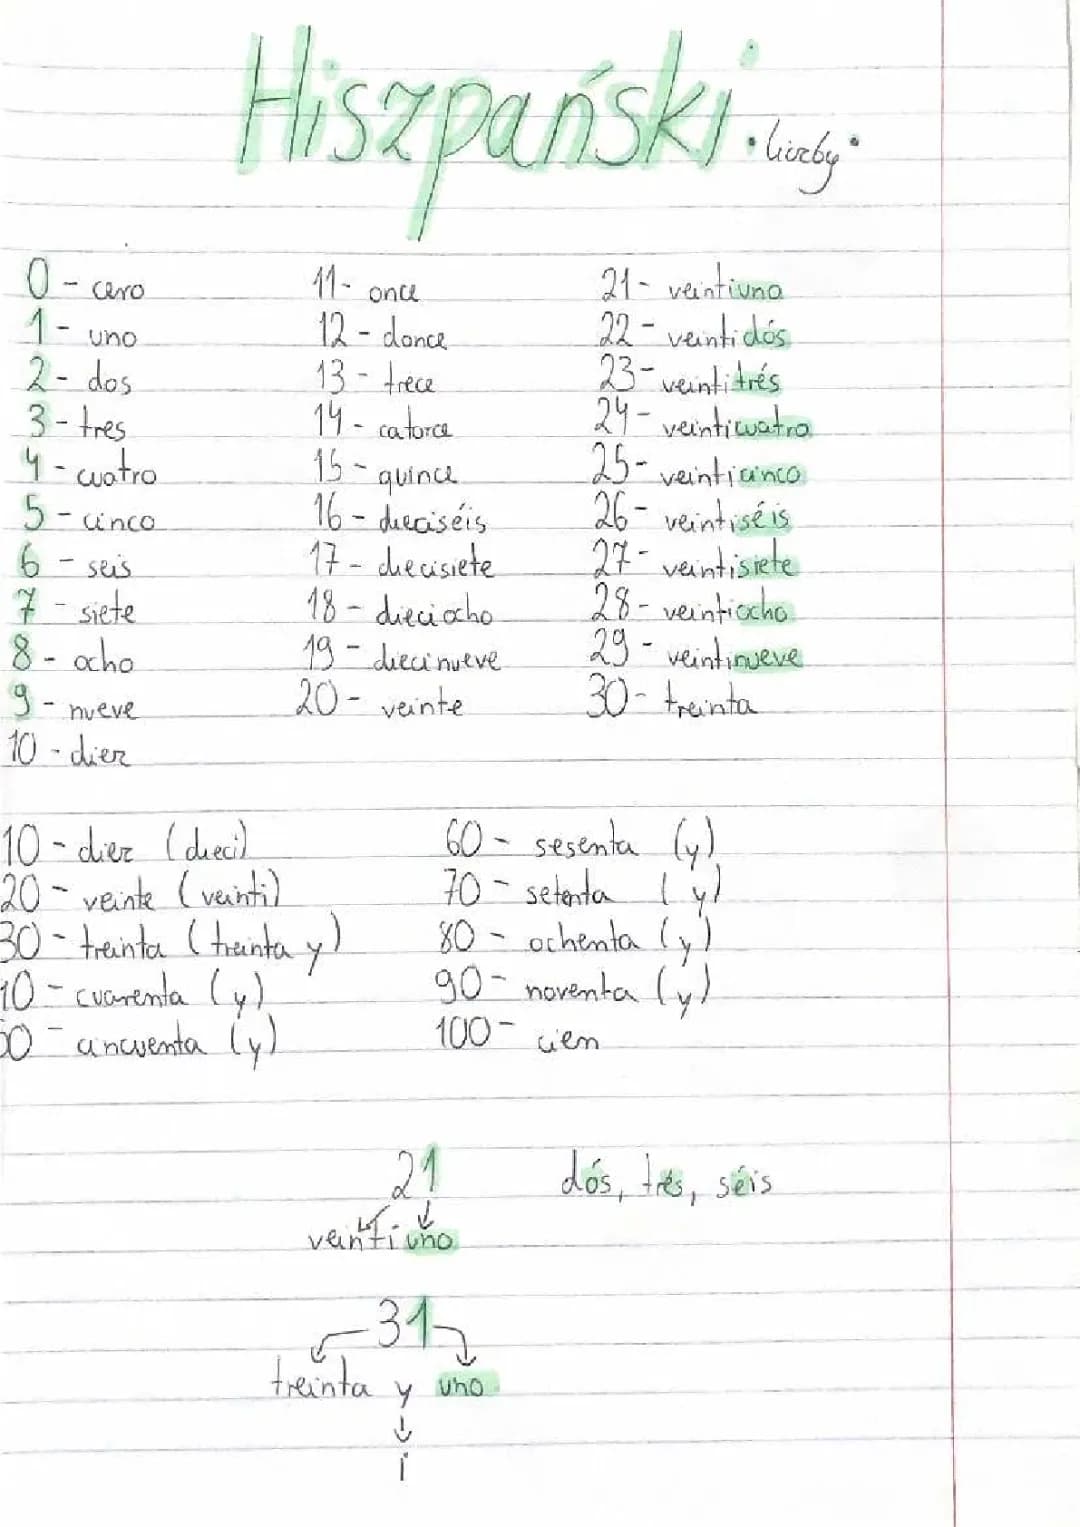 Hiszpański • liczby •
0 - cero
1 - uno
2 - dos
3 - tres
4 - cuatro
5 - cinco
6 - seis
7 - siete
8 - ocho
9 - nueve
10 - diez
11 - once
12 - donce
13 - trece
14 - catorce
15 - quince
16 - dieciséis
17 - diecisiete
18 - dieciocho
19 - diecinueve
20 - veinte
21 - veintiuno
22 - veintidós
23 - veintitrés
24 - veinticuatro
25 - veinticinco
26 - veintiséis
27 - veintisiete
28 - veintiocho
29 - veintinueve
30 - treinta
10 - diez (dieci)
20 - veinte (veinti)
30 - treinta (treinta y)
40 - cuarenta (y)
50 - cincuenta (y)
60 - sesenta (y)
70 - setenta (y)
80 - ochenta (y)
90 - noventa (y)
100 - cien
21
dós, trés, séis
veinti uno
31
treinta y uno
i